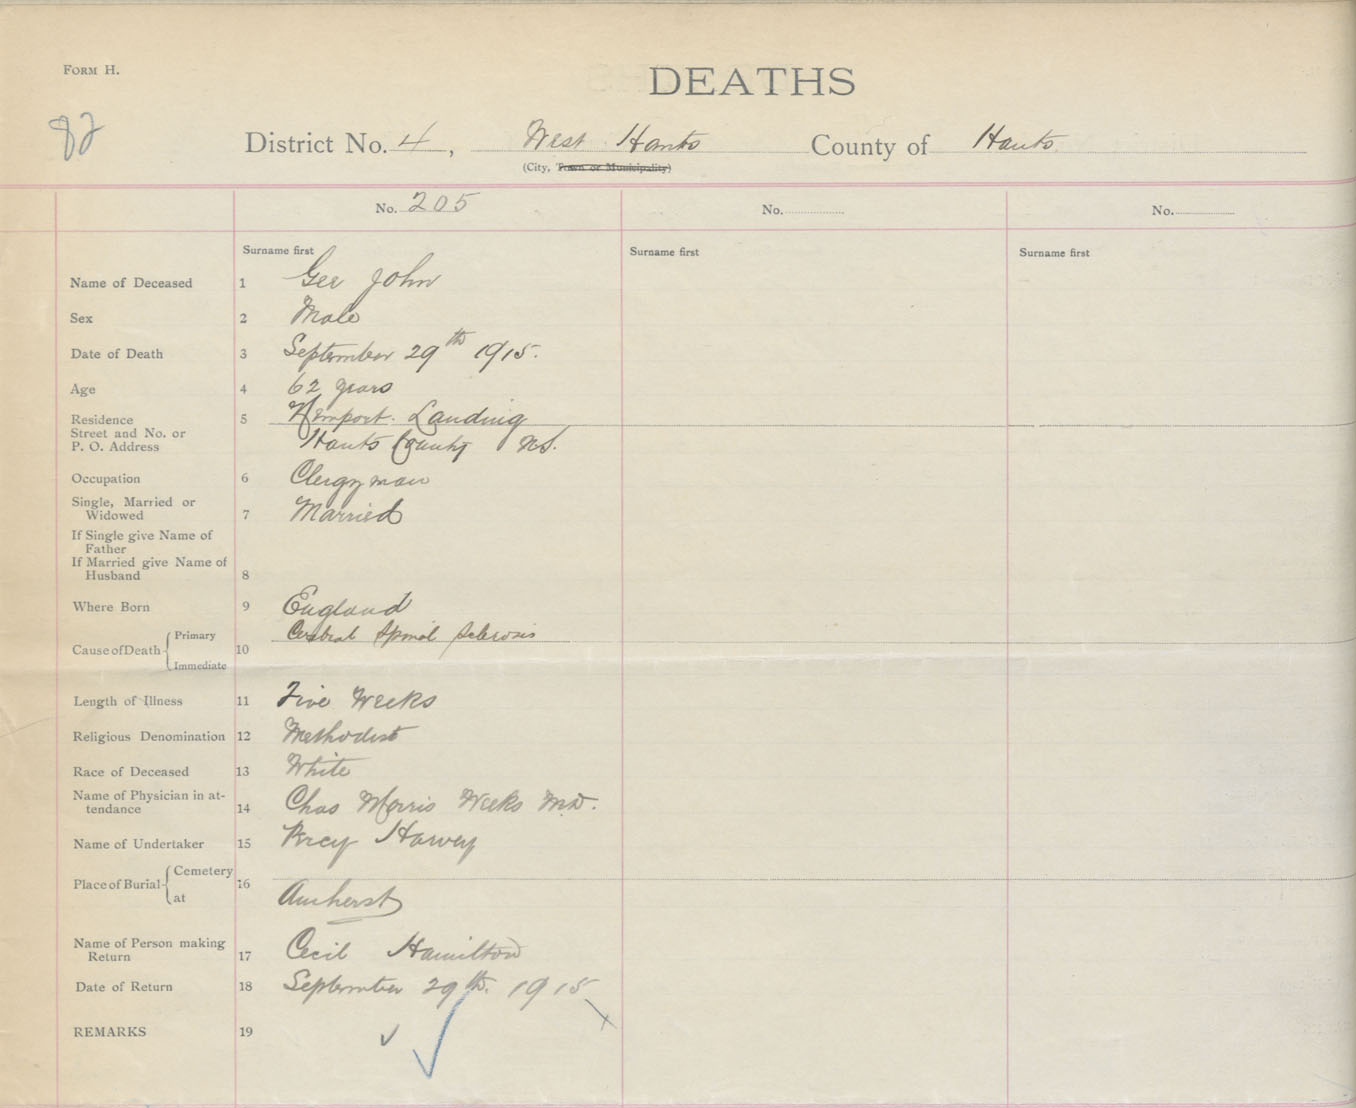 FORM H.
DEATHS
82
District No. 4, West Hants County of Hants
(City, Town or Municipality)
No. 205 No. No.
Surname first Surname first Surname first
Name of Deceased 1 Gee John
Sex 2 Male
Date of Death 3 September 29th 1915.
Age 4 62 years
Residence 5 Newport Landing
Street and No. or
P. O. Address Hants County NS.
Occupation 6 Clergyman
Single, Married or
Widowed 7 Married
If Single give Name of
Father
If Married give Name of
Husband 8
Where Born 9 England
Cause of Death Primary Cerebral Spinal Sclerosis
10
Immediate
Length of Illness 11 Five Weeks
Religious Denomination 12 Methodist
Race of Deceased 13 White
Name of Physician in at-
tendance 14 Chas Morris Weeks M.D.
Name of Undertaker 15 Percy Harvey
Place of Burial Cemetery
16
at Amherst
Name of Person making
Return 17 Cecil Hamilton
Date of Return 18 September 29th. 1915
REMARKS 19